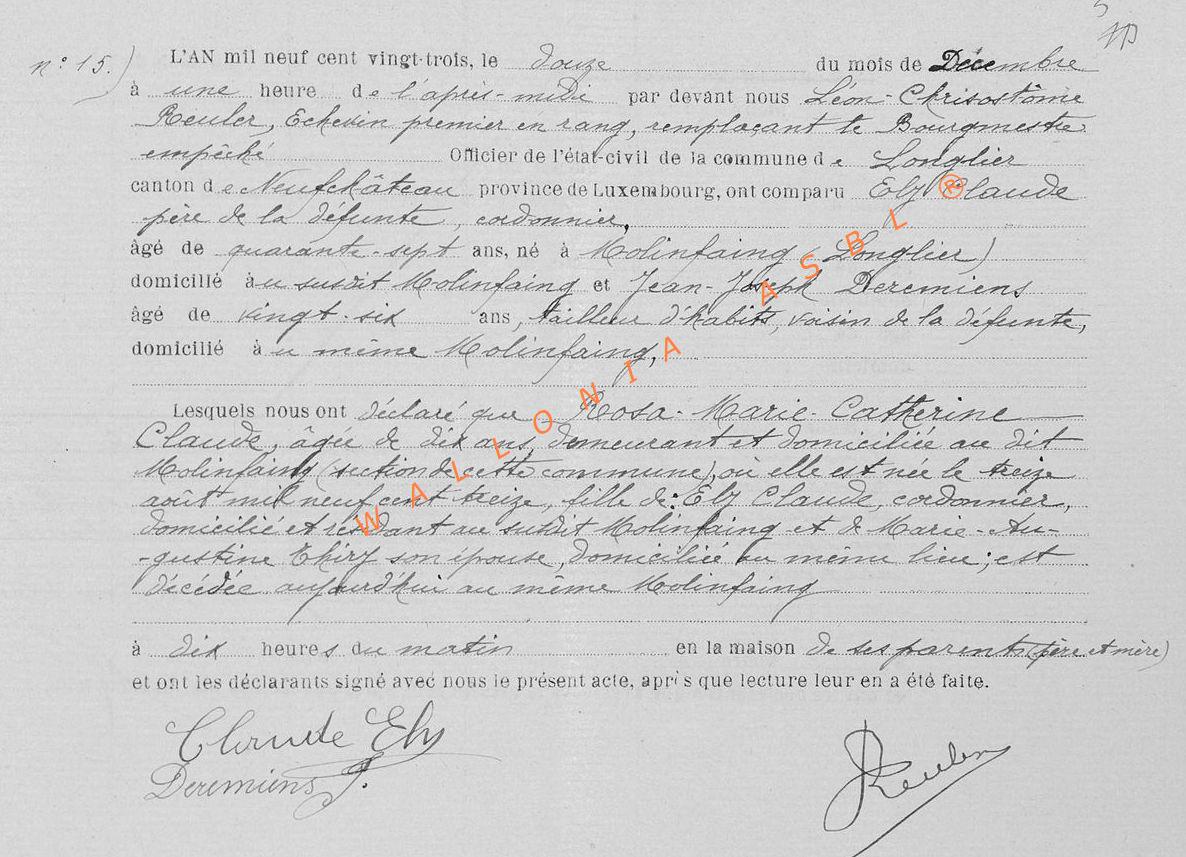 n° 15.)
L'AN mil neuf cent vingt-trois, le douze du mois de Décembre
à une heure de l'après-midi par devant nous Léon-Chrisostôme
Reuler, Echevin premier en rang, remplaçant le Bourgmestre
empêché Officier de l'état-civil de la commune de Longlier
canton de Neufchâteau province de Luxembourg, ont comparu Ely Claude
père de la défunte, cordonnier,
âgé de quarante-sept ans, né à Molinfaing (Longlier)
domicilié au susdit Molinfaing et Jean-Joseph Deremiens
âgé de vingt-six ans, tailleur d'habits, voisin de la défunte,
domicilié au même Molinfaing,
Lesquels nous ont déclaré que Rosa-Marie-Catherine
Claude, âgée de dix ans, demeurant et domiciliée au dit
Molinfaing (section de cette commune), où elle est née le treize
août mil neuf cent treize, fille de: Ely Claude, cordonnier,
domicilié et résidant au susdit Molinfaing et de Marie-Au-
-gustine Thiry son épouse, domiciliée au même lieu; est
décédée aujourd'hui au même Molinfaing
à dix heures du matin en la maison de ses parents (père et mère)
et ont les déclarants signé avec nous le présent acte, après que lecture leur en a été faite.
Claude Ely
Deremiens J.
Reuler
WALLONIA ASBL ®